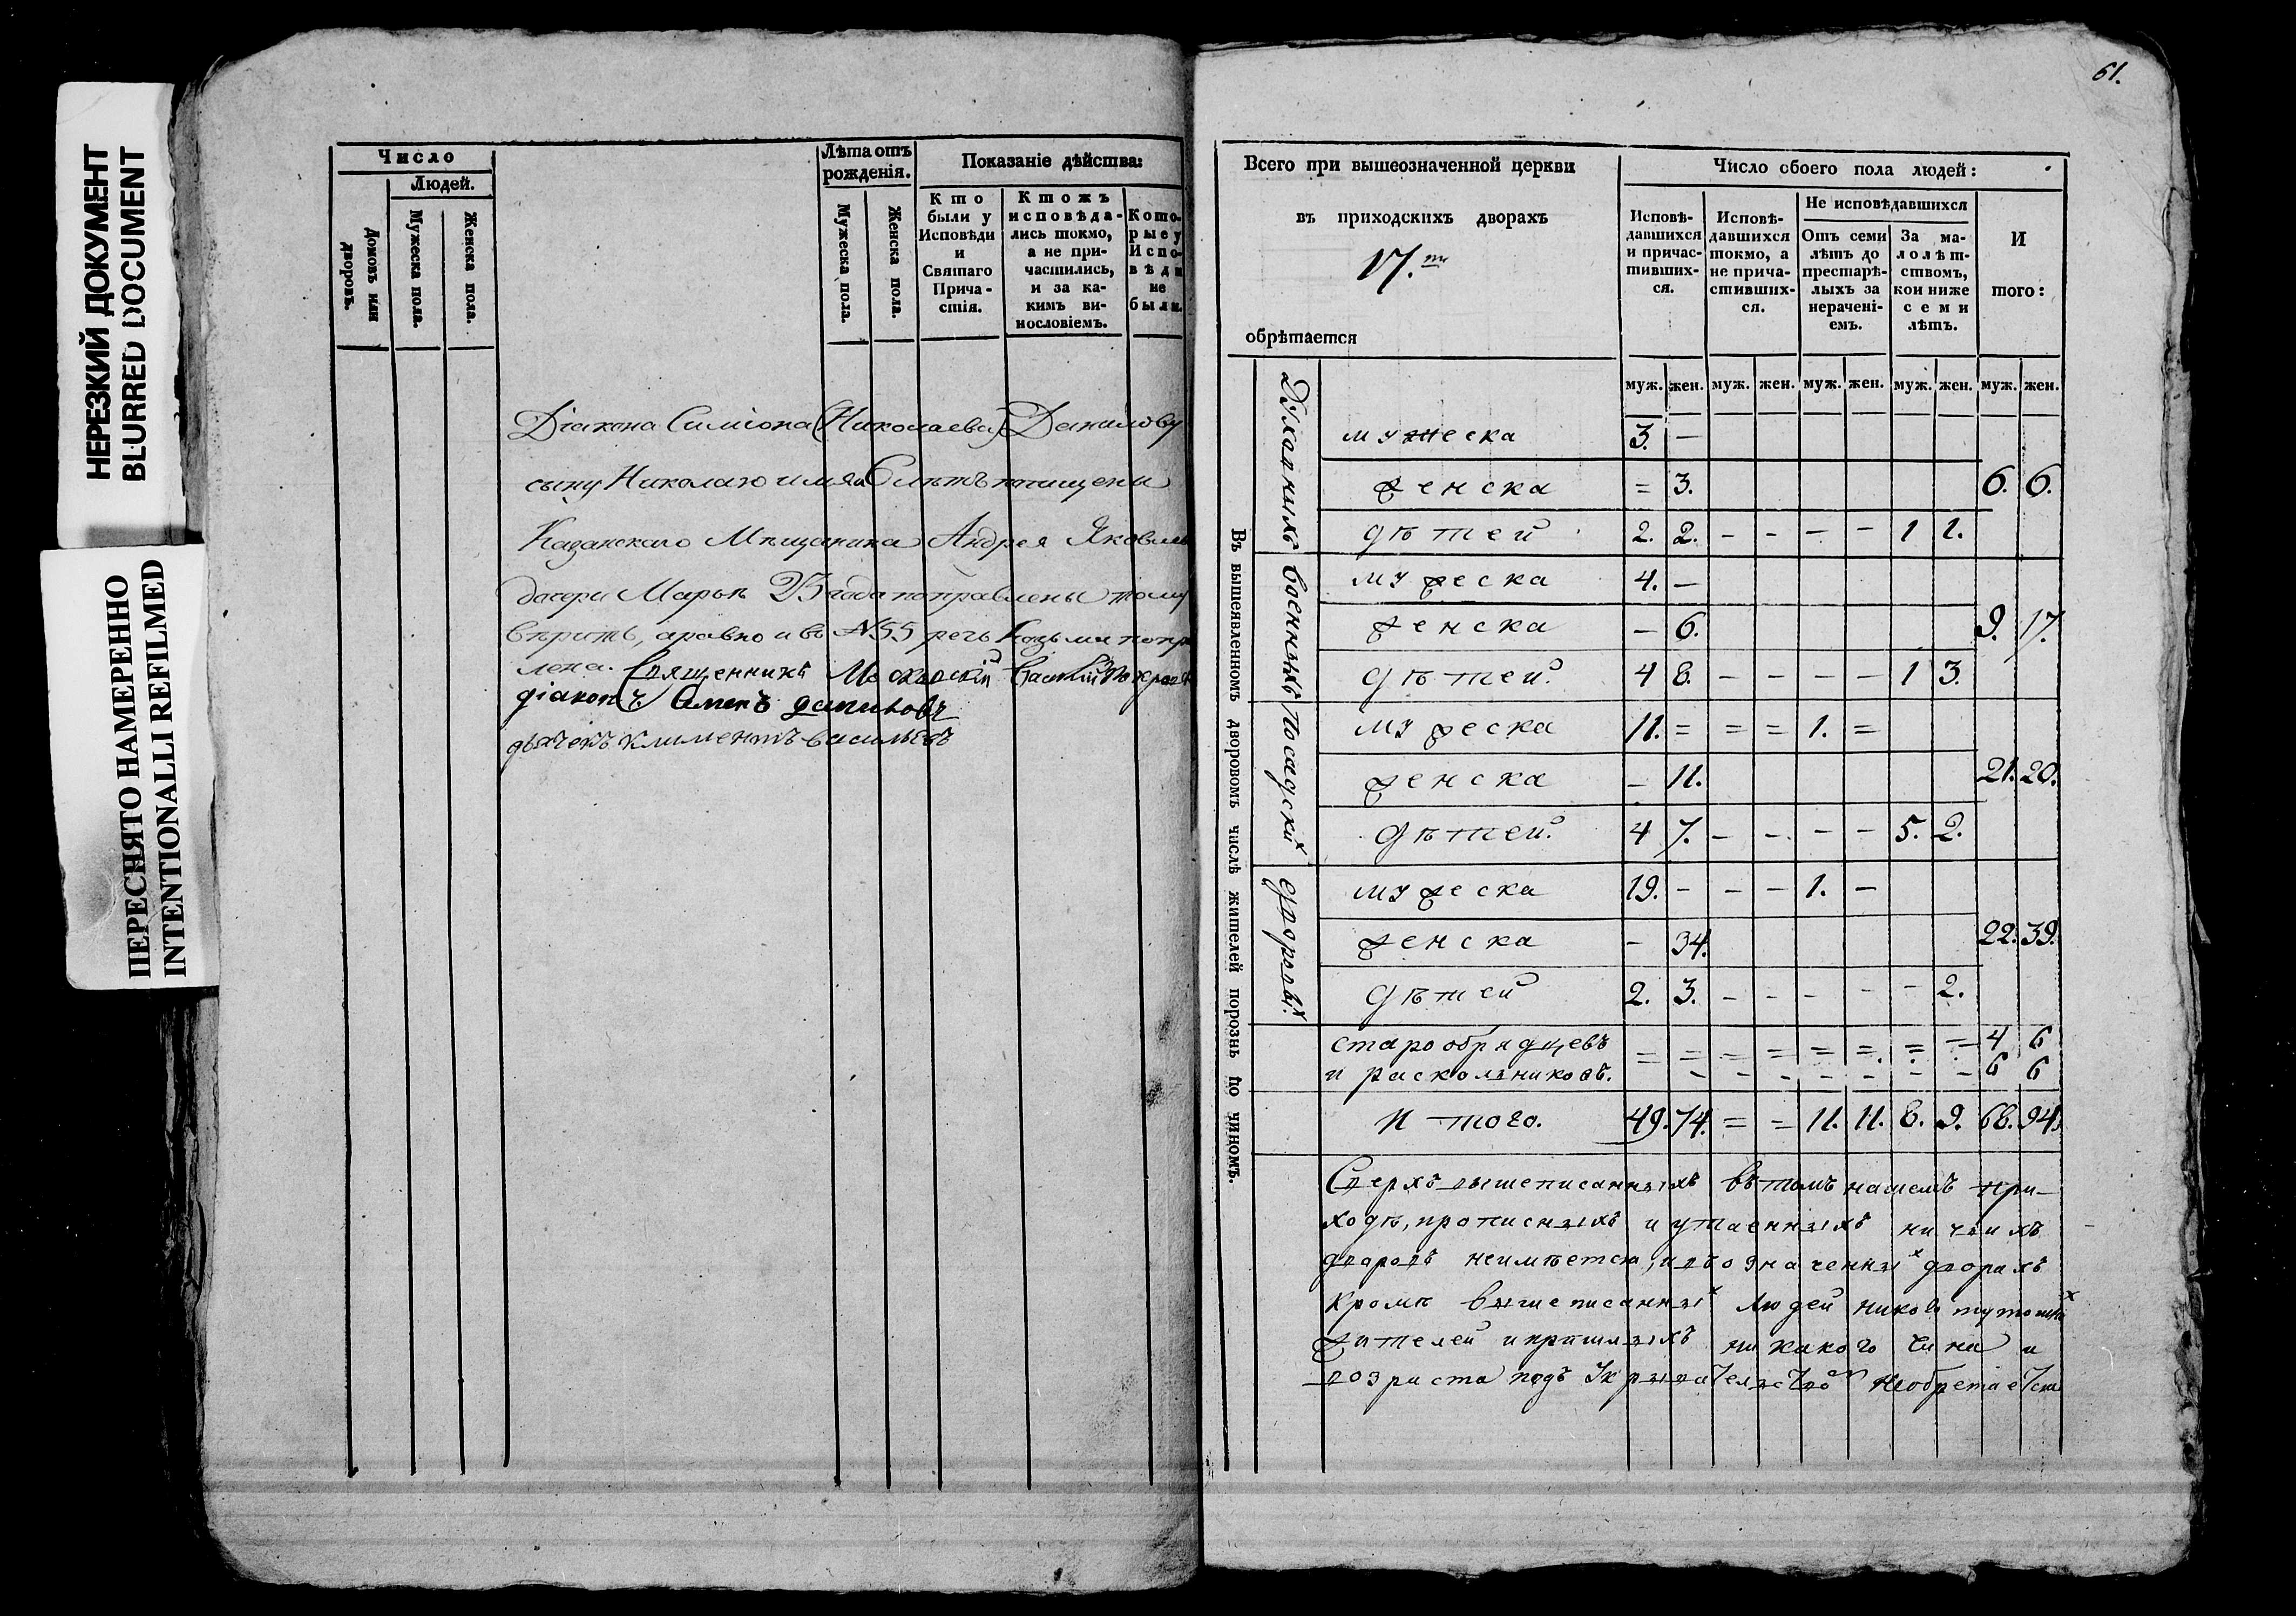 НЕРЕЗКИЙ ДОКУМЕНТ
BLURRED DOCUMENT
ПЕРЕСНЯТО НАМЕРЕННО
INTENTIONALLI REFILMED
Число
Людей.
Домовъ или дворовъ.
Мужеска пола.
Женска пола.
Лѣта отъ рожденія.
Мужеска пола.
Женска пола.
Показаніе дѣйства:
Кто были у Исповѣди и Святаго Прича-стія.
Ктожъ исповѣда-лись токмо, а не при-частились, и за ка-кимъ ви-нословіемъ.
Кото-рые у Испо-вѣди не были.
Діакона Симіона (Николаева) Данилову
сыну Николаю имяи 6 лѣтъ
Казанскаго Мѣщанина Андрея Яковлева
дочери Марьѣ 23 года поправлены тому
вѣрить, а равно и въ №55 речь Козьма попра
лена. Священникъ Василій
діаконъ Симеонъ даниловъ
дьячекъ климентъ васильевъ
61.
Всего при вышеозначенной церкви
въ приходскихъ дворахъ
17.ти
обрѣтается
Число обоего пола людей:
Исповѣ-давшихся и причас-тивших-ся.
Исповѣ-давшихся токмо, а не прича-стивших-ся.
Не исповѣдавшихся
Отъ семи лѣтъ до престарѣ-лыхъ за нерачені-емъ.
За ма-лолѣт-ствомъ, кои ниже семи лѣтъ.
И того:
муж. жен. муж. жен. муж. жен. муж. жен. муж. жен.
Въ вышеявленномъ дворовомъ числѣ жителей порознь по чиномъ.
Духовныхъ
мужеска 3. –
женска = 3. 6. 6.
дѣтей 2. 2. – – – – 1 1.
военныхъ
мужеска 4. –
женска – 6. 9. 17.
дѣтей 4 8. – – – – 1 3.
Посадских
мужеска 11. = = = 1. =
женска – 11. 21. 20.
дѣтей 4 7. – – – – 5. 2.
дворовых
мужеска 19. – – – 1. –
женска – 34. 22. 39.
дѣтей 2. 3. – – – – – 2.
старообрядцевъ = = = = = = = – 4 6
и раскольниковъ. – – – – – – – 6 6
И того. 49. 74. = = 11. 11. 8. 9. 68. 94.
Сверхъ вышеписанныхъ въ томъ нашемъ при-
ходѣ, прописныхъ и утаенныхъ ни чьихъ
дворовъ неимѣется, и въ означенных дворахъ
кромѣ вышеписанных людей никого тутошних
жителей и пришлыхъ ни какого чина и
возраста подъ укрывательством необретается